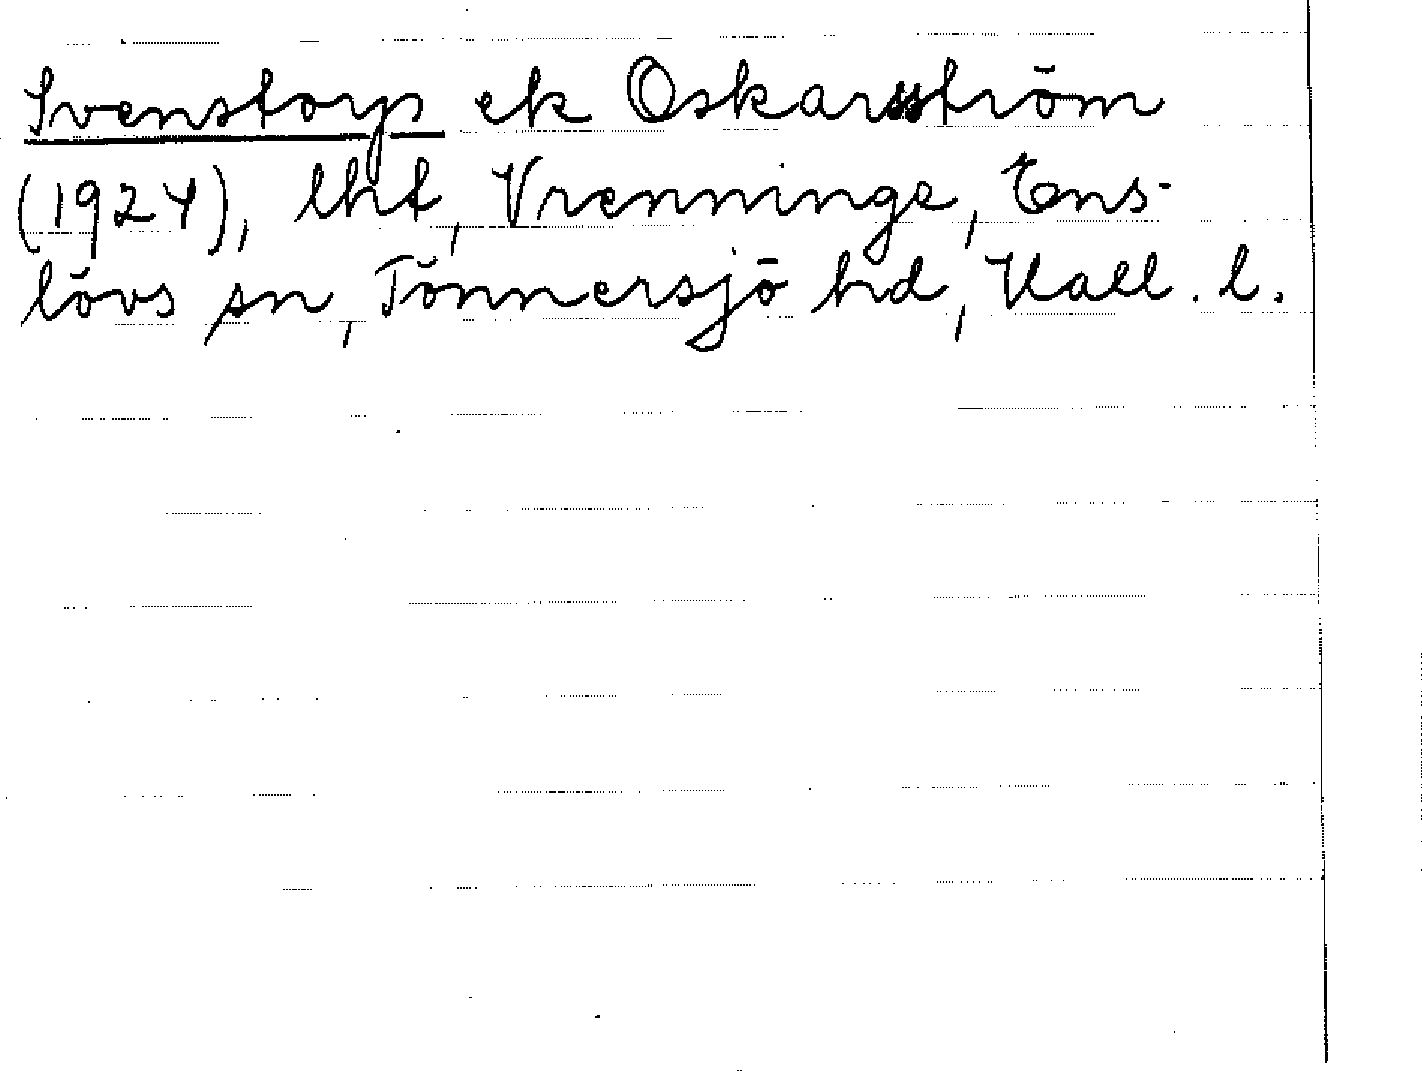 Svenstorp ek Oskarsström
(1924), lht, Vrenninge, Ens-
lövs sn, Tönnersjö hd, Hall. l.